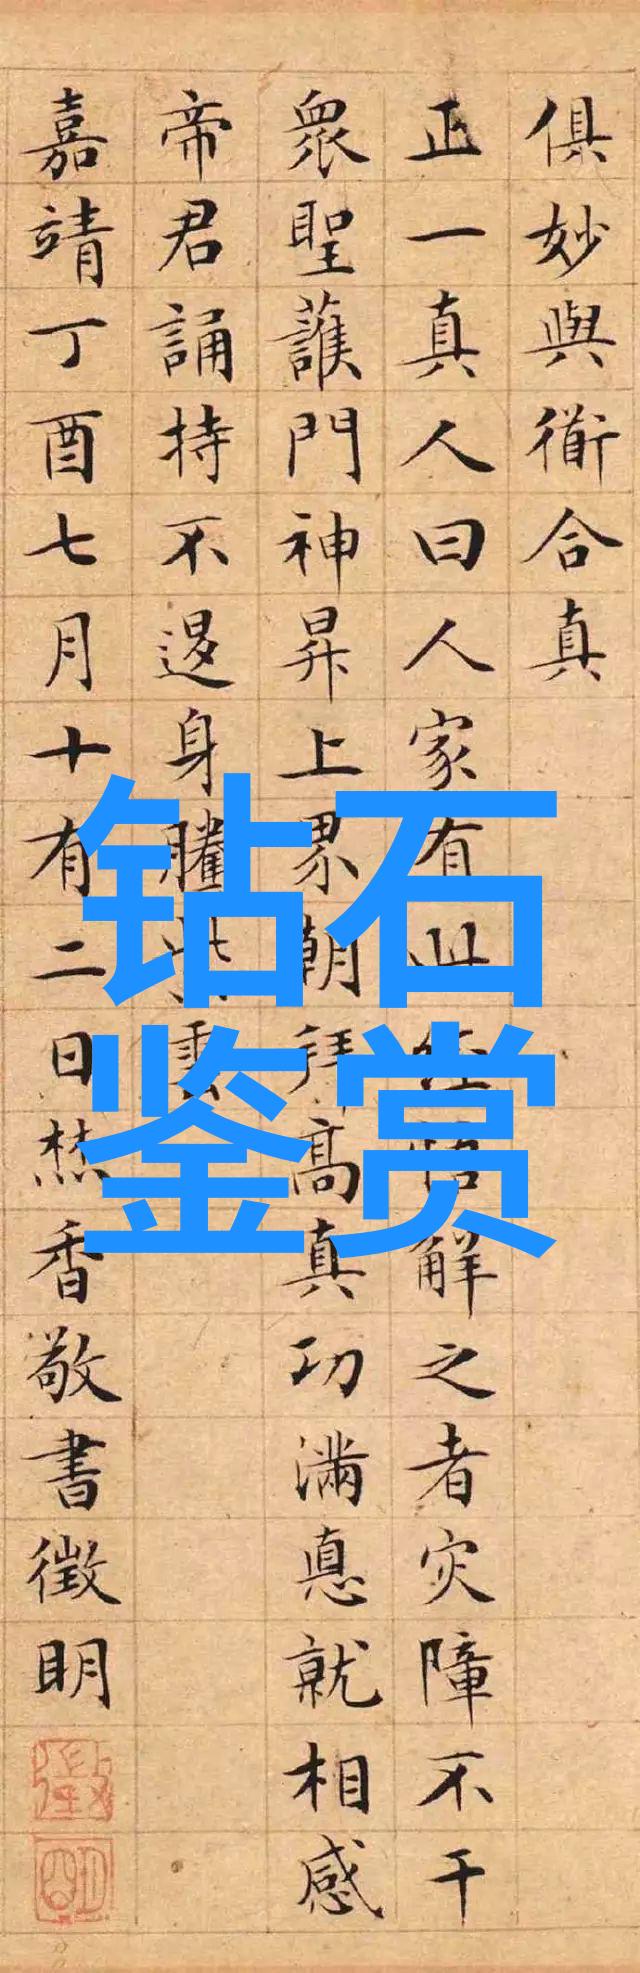 俱妙與衜合真
正一真人曰人家有此經悟解之者灾障不干
衆聖護門神昇上界朝拜高真功滿悳就相感
帝君誦持不退身騰紫雲
嘉靖丁酉七月十有二日焚香敬書徵明
徵
明
钻石
鉴赏